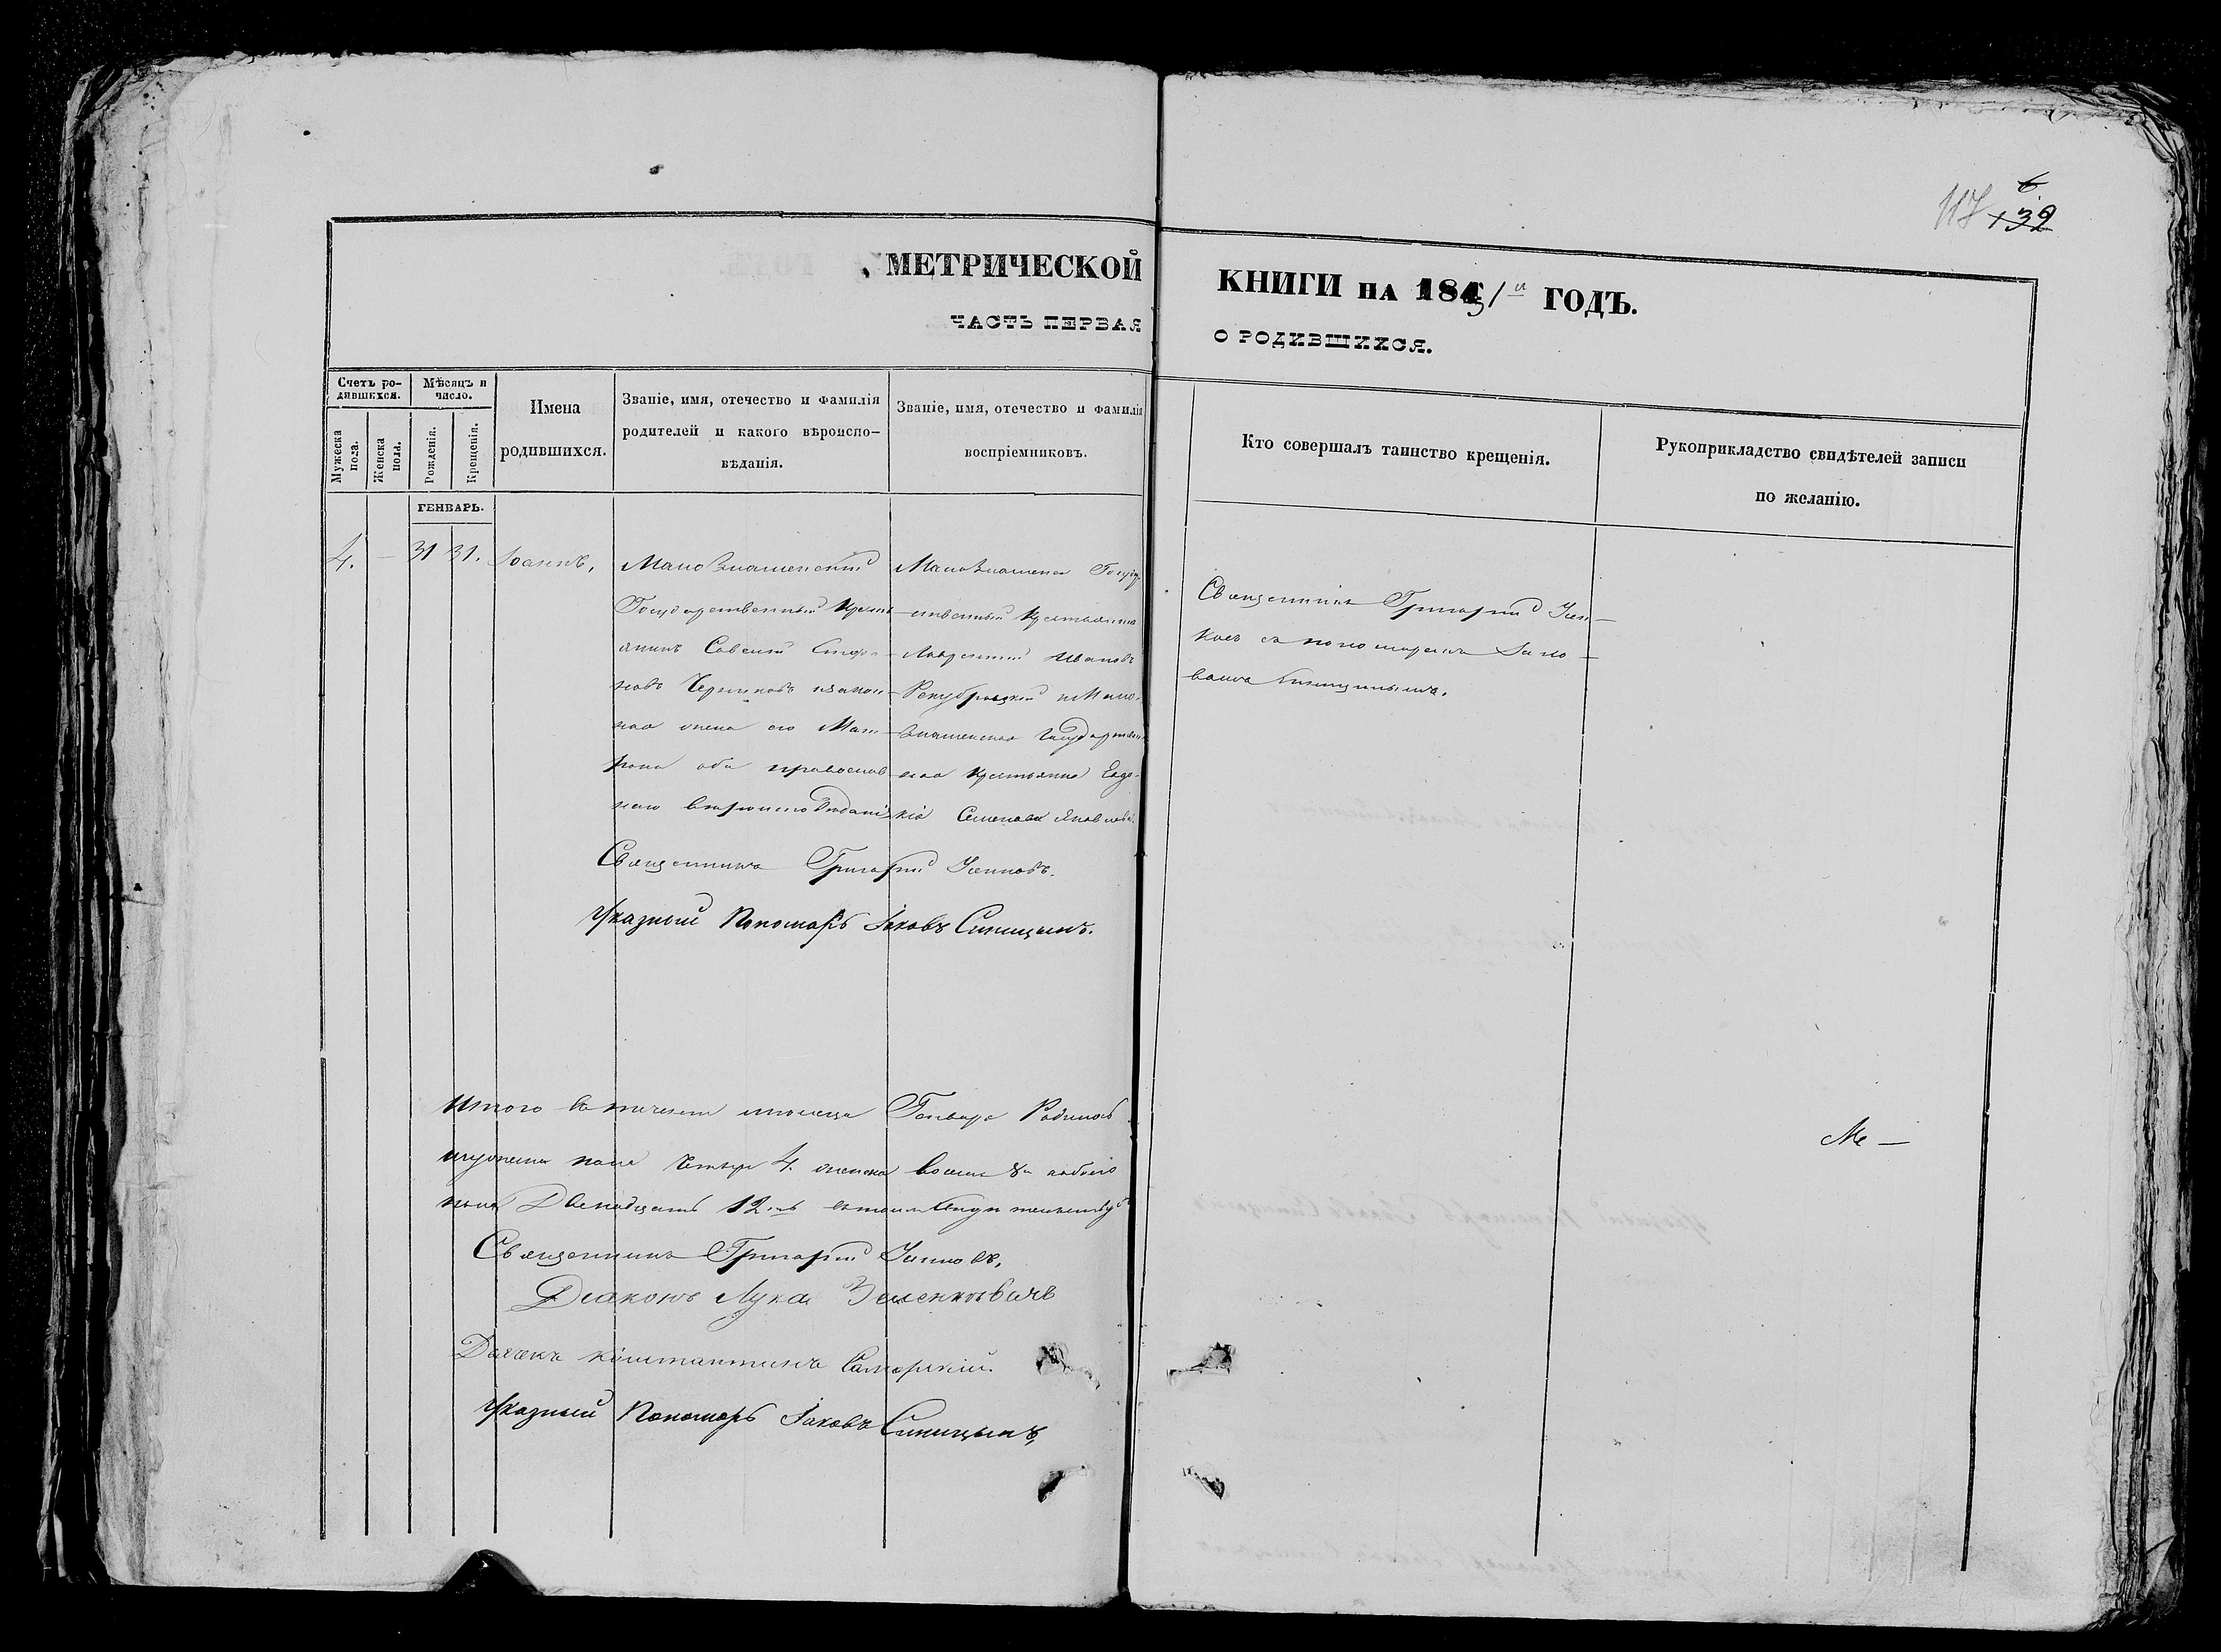 117 132
МЕТРИЧЕСКОЙ КНИГИ НА 1851 й ГОДЪ.
ЧАСТЬ ПЕРВАЯ О РОДИВШИХСЯ.
Счетъ родившихся.
Мужеска пола.
Женска пола.
Мѣсяцъ и число.
Рожденія.
Крещенія.
Имена родившихся.
Званіе, имя, отечество и фамилія
родителей и какого вѣроиспо-
вѣданія.
Званіе, имя, отечество и фамилія
воспріемниковъ.
Кто совершалъ таинство крещенія.
Рукоприкладство свидѣтелей записи
по желанію.
ГЕНВАРЬ.
4. — 31 31. Іоаннъ,
Малознаменскій
Государственный Крест
янинъ Савелий Стефа
новъ Черниковъ изакон
ная жена его Мат
рона оба православ
наго вѣроисповѣданія
Малознаменск Госуд
ственный Крестьянинъ
Лаврентий Ивановъ
иМало
знаменская Государствен
ная Крестьянка Евдо
кія Семенова Яковлева
Священникъ Григорий
ковъ съ пономаремъ Іако
вомъ Синицынымъ.
Священникъ Григорий
Указный Пономарь Іаковъ Синицынъ.
Итого въ течении мѣсяца Генваря Родилось
мужеска пола четыре 4. женска восемь 8 обоего
пола Двенадцать 12ть
Священникъ Григорий
Діаконъ Лука
Дьячекъ Константинъ Самарскій.
Указный Пономарь Іаковъ Синицынъ